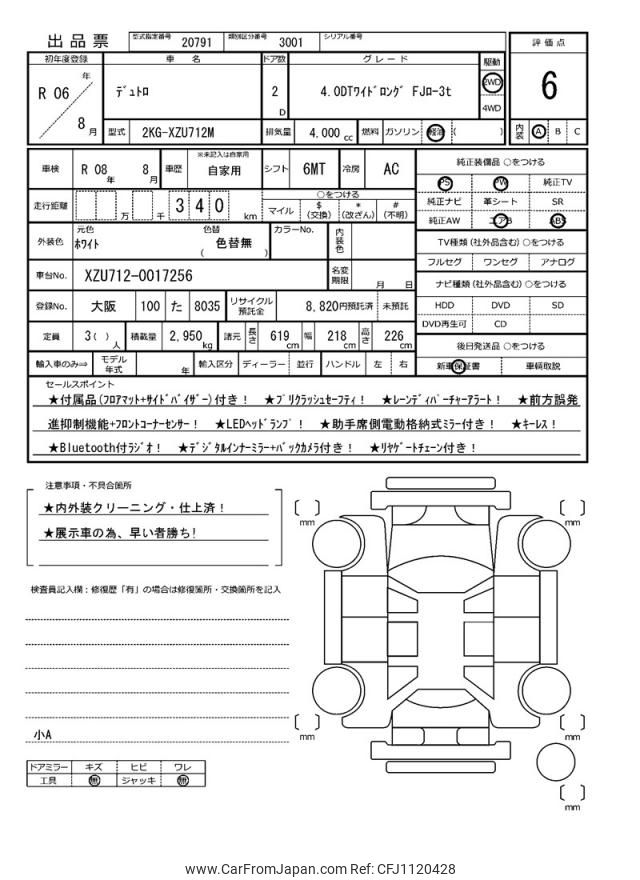 出品票 型式指定番号 20791 類別区分番号 3001 シリアル番号
初年度登録 車名 ドア数 グレード 駆動 評価点
R 06 年 8 月 デュトロ 2 D 4.0DTワイドロング FJロー3t 2WD 4WD 6
型式 2KG-XZU712M 排気量 4,000 cc 燃料 ガソリン 軽油 ( ) 内装 A B C
車検 R 08 年 8 月 車歴 ※未記入は自家用 自家用 シフト 6MT 冷房 AC
走行距離 万 千 3 4 0 km ○をつける
マイル $(交換) *(改ざん) #(不明)
外装色 元色 ホワイト 色替 ( 色替無 ) カラーNo. 内装色
車台No. XZU712-0017256 名変期限 月 日
登録No. 大阪 100 た 8035 リサイクル預託金 8,820円預託済 未預託
定員 3( ) 人 積載量 2,950 kg 諸元 長さ 619 cm 幅 218 cm 高さ 226 cm
輸入車のみ⇒ モデル年式 年 輸入区分 ディーラー 並行 ハンドル 左 右
純正装備品 ○をつける
PS PW 純正TV
純正ナビ 革シート SR
純正AW エアB ABS
TV種類(社外品含む)○をつける
フルセグ ワンセグ アナログ
ナビ種類(社外品含む)○をつける
HDD DVD SD
DVD再生可 CD
後日発送品 ○をつける
新車保証書 車輌取説
セールスポイント
★付属品(フロアマット+サイドバイザー)付き! ★プリクラッシュセーフティ! ★レーンディパーチャーアラート! ★前方誤発
進抑制機能+フロントコーナーセンサー! ★LEDヘッドランプ! ★助手席側電動格納式ミラー付き! ★キーレス!
★Bluetooth付ラジオ! ★デジタルインナーミラー+バックカメラ付き! ★リヤゲートチェーン付き!
注意事項・不具合箇所
★内外装クリーニング・仕上済!
★展示車の為、早い者勝ち!
検査員記入欄:修復歴「有」の場合は修復箇所・交換箇所を記入
小A
ドアミラー キズ ヒビ ワレ
工具 無 ジャッキ 無
mm
mm
mm
mm
mm
www.CarFromJapan.com Ref: CFJ1120428